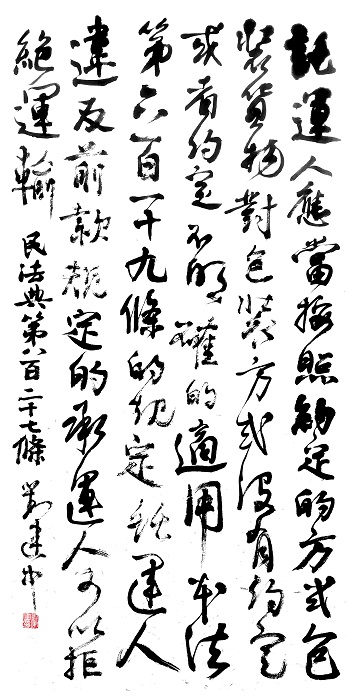 託運人應當按照約定的方式包
裝貨物對包裝方式沒有約定
或者約定不明確的適用本法
第六百一十九條的規定託運人
違反前款規定的承運人可以拒
絕運輸 民法典第八百二十七條 劉建